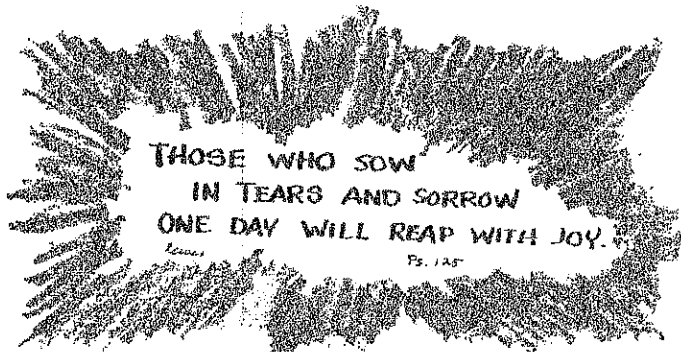 THOSE WHO SOW
IN TEARS AND SORROW
ONE DAY WILL REAP WITH JOY.
Ps. 125